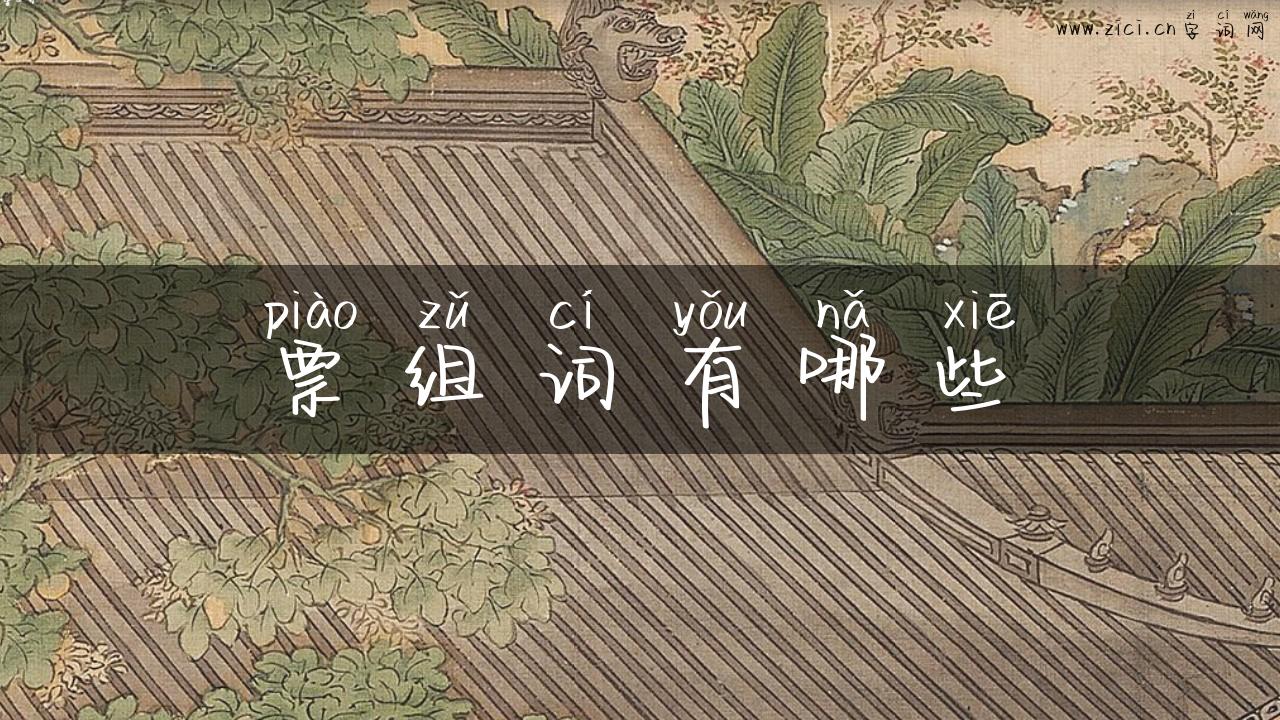 zì cí wǎng
www.zici.cn 字 词 网
piào zǔ cí yǒu nǎ xiē
票 组 词 有 哪 些